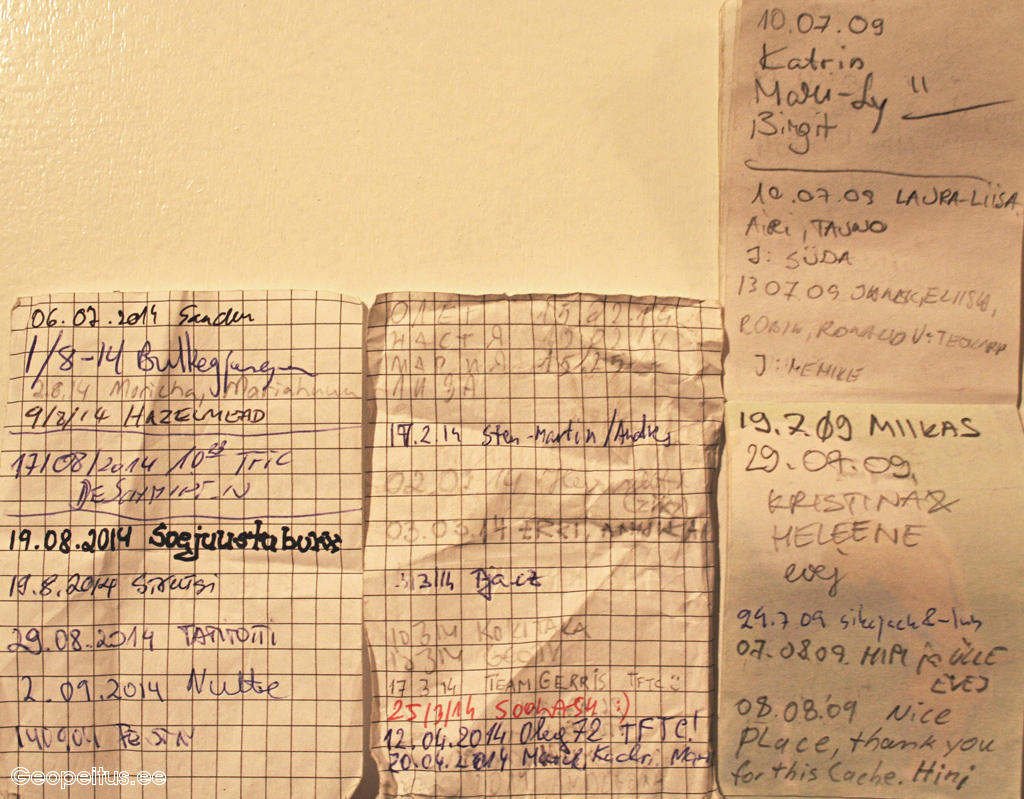 06.07.2014 Sander
1/8-14
2.8.14 Moricha, Mariannum
9/8/14 HAZELMEAD
17/08/2014 TFTC
19.08.2014
19.8.2014
29.08.2014
2.09.2014
Geopeitus.ee
ОЛЕГ 15.02.14
НАСТЯ
МАРИЯ
ЛИЗА
17.2.14 Sten-Martin/Andres
02.03.14
03.03.14
3/3/14 Tjaez
10 3 14 KOKITAKA
13 3 14
17 3 14 TEAM GERRIS TFTC
25/3/14 :)
12.04.2014 Oleg72 TFTC!
20.04.2014 Kadri,
10.07.09
Katrin
Mari-Ly
Birgit
10.07.09 LAURA-LIISA,
AIRI, TAUNO
J: SÜDA
13 07.09 ELIISA,
ROBIN, RONALD
J: MEMIKE
19.7.09 MIIKAS
29.07.09.
KRISTINA &
HELEENE
evej
29.7.09
07.08.09. HIPI ja ÜLLE
EVEJ
08.08.09 Nice
PLace, thank you
for this Cache. Hinj